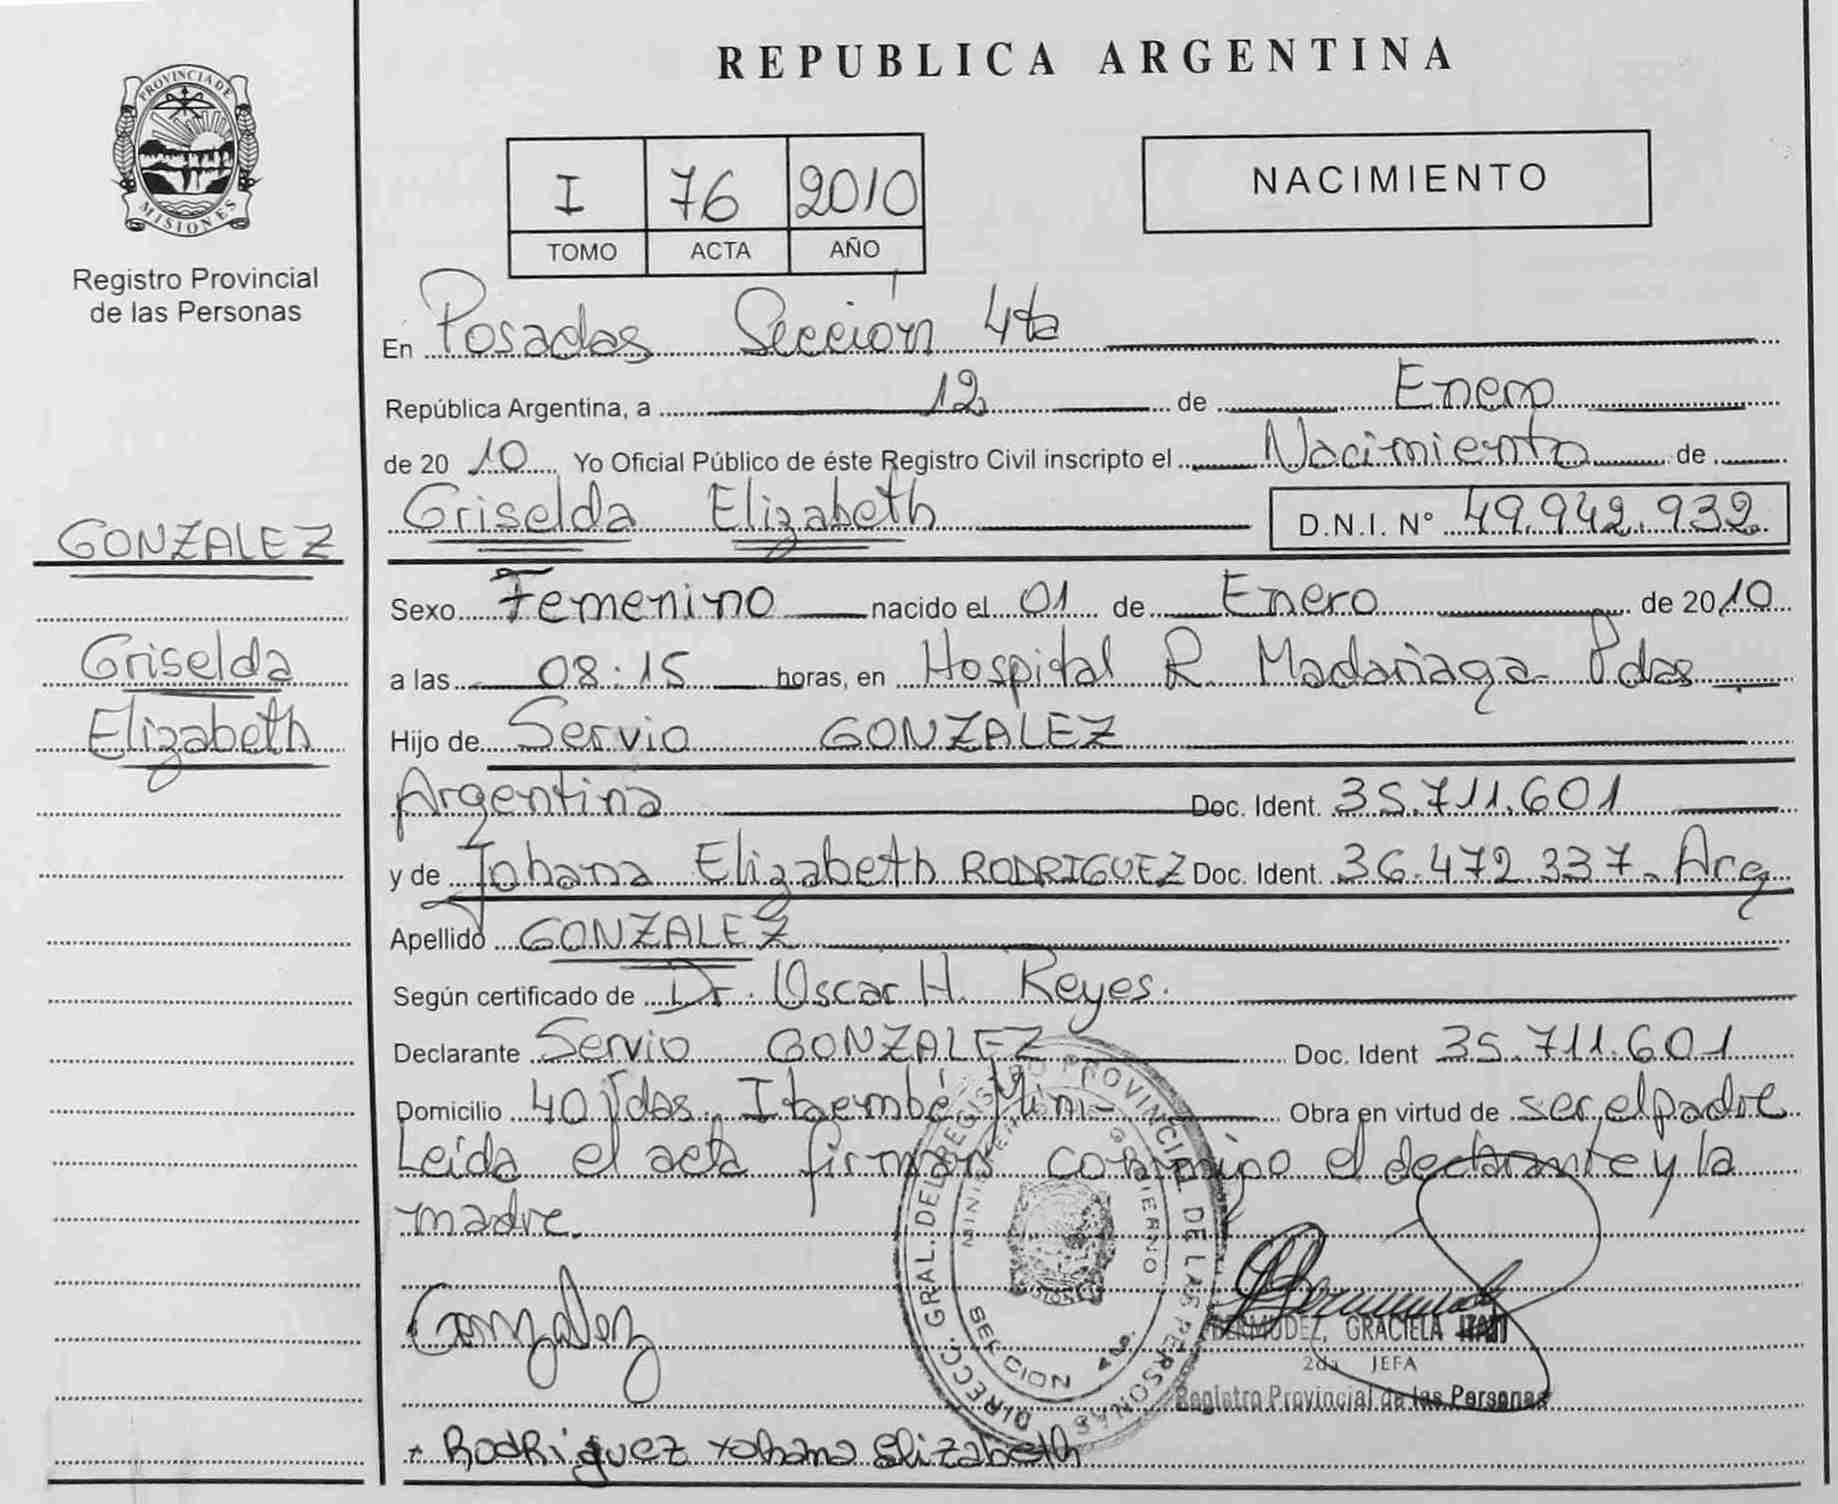 REPUBLICA ARGENTINA
PROVINCIA DE MISIONES
Registro Provincial
de las Personas
I 76 2010
TOMO ACTA AÑO
NACIMIENTO
En Posadas Sección 4ta
República Argentina, a 12 de Enero
de 20 10 Yo Oficial Público de éste Registro Civil inscripto el Nacimiento de
Griselda Elizabeth D.N.I. N° 49.942.932
GONZALEZ
Griselda
Elizabeth
Sexo Femenino nacido el 01 de Enero de 2010
a las 08:15 horas, en Hospital R. Madariaga Pdas
Hijo de Servio GONZALEZ
Argentina Doc. Ident. 35.711.601
y de Johana Elizabeth RODRIGUEZ Doc. Ident. 36.472.337 - Arg
Apellido GONZALEZ
Según certificado de Dr. Oscar H. Reyes.
Declarante Servio GONZALEZ Doc. Ident 35.711.601
Domicilio 40 Vdas. Itaembé Mini- Obra en virtud de ser el padre
Leída el acta firman conmigo el declarante y la
madre.
DIRECC. GRAL. DEL REGISTRO PROVINCIAL DE LAS PERSONAS
MINISTERIO GOBIERNO
SECCION 4ta.
Gonzalez
BERMUDEZ, GRACIELA ITATI
2da JEFA
Registro Provincial de las Personas
Rodriguez Yohana Elizabeth